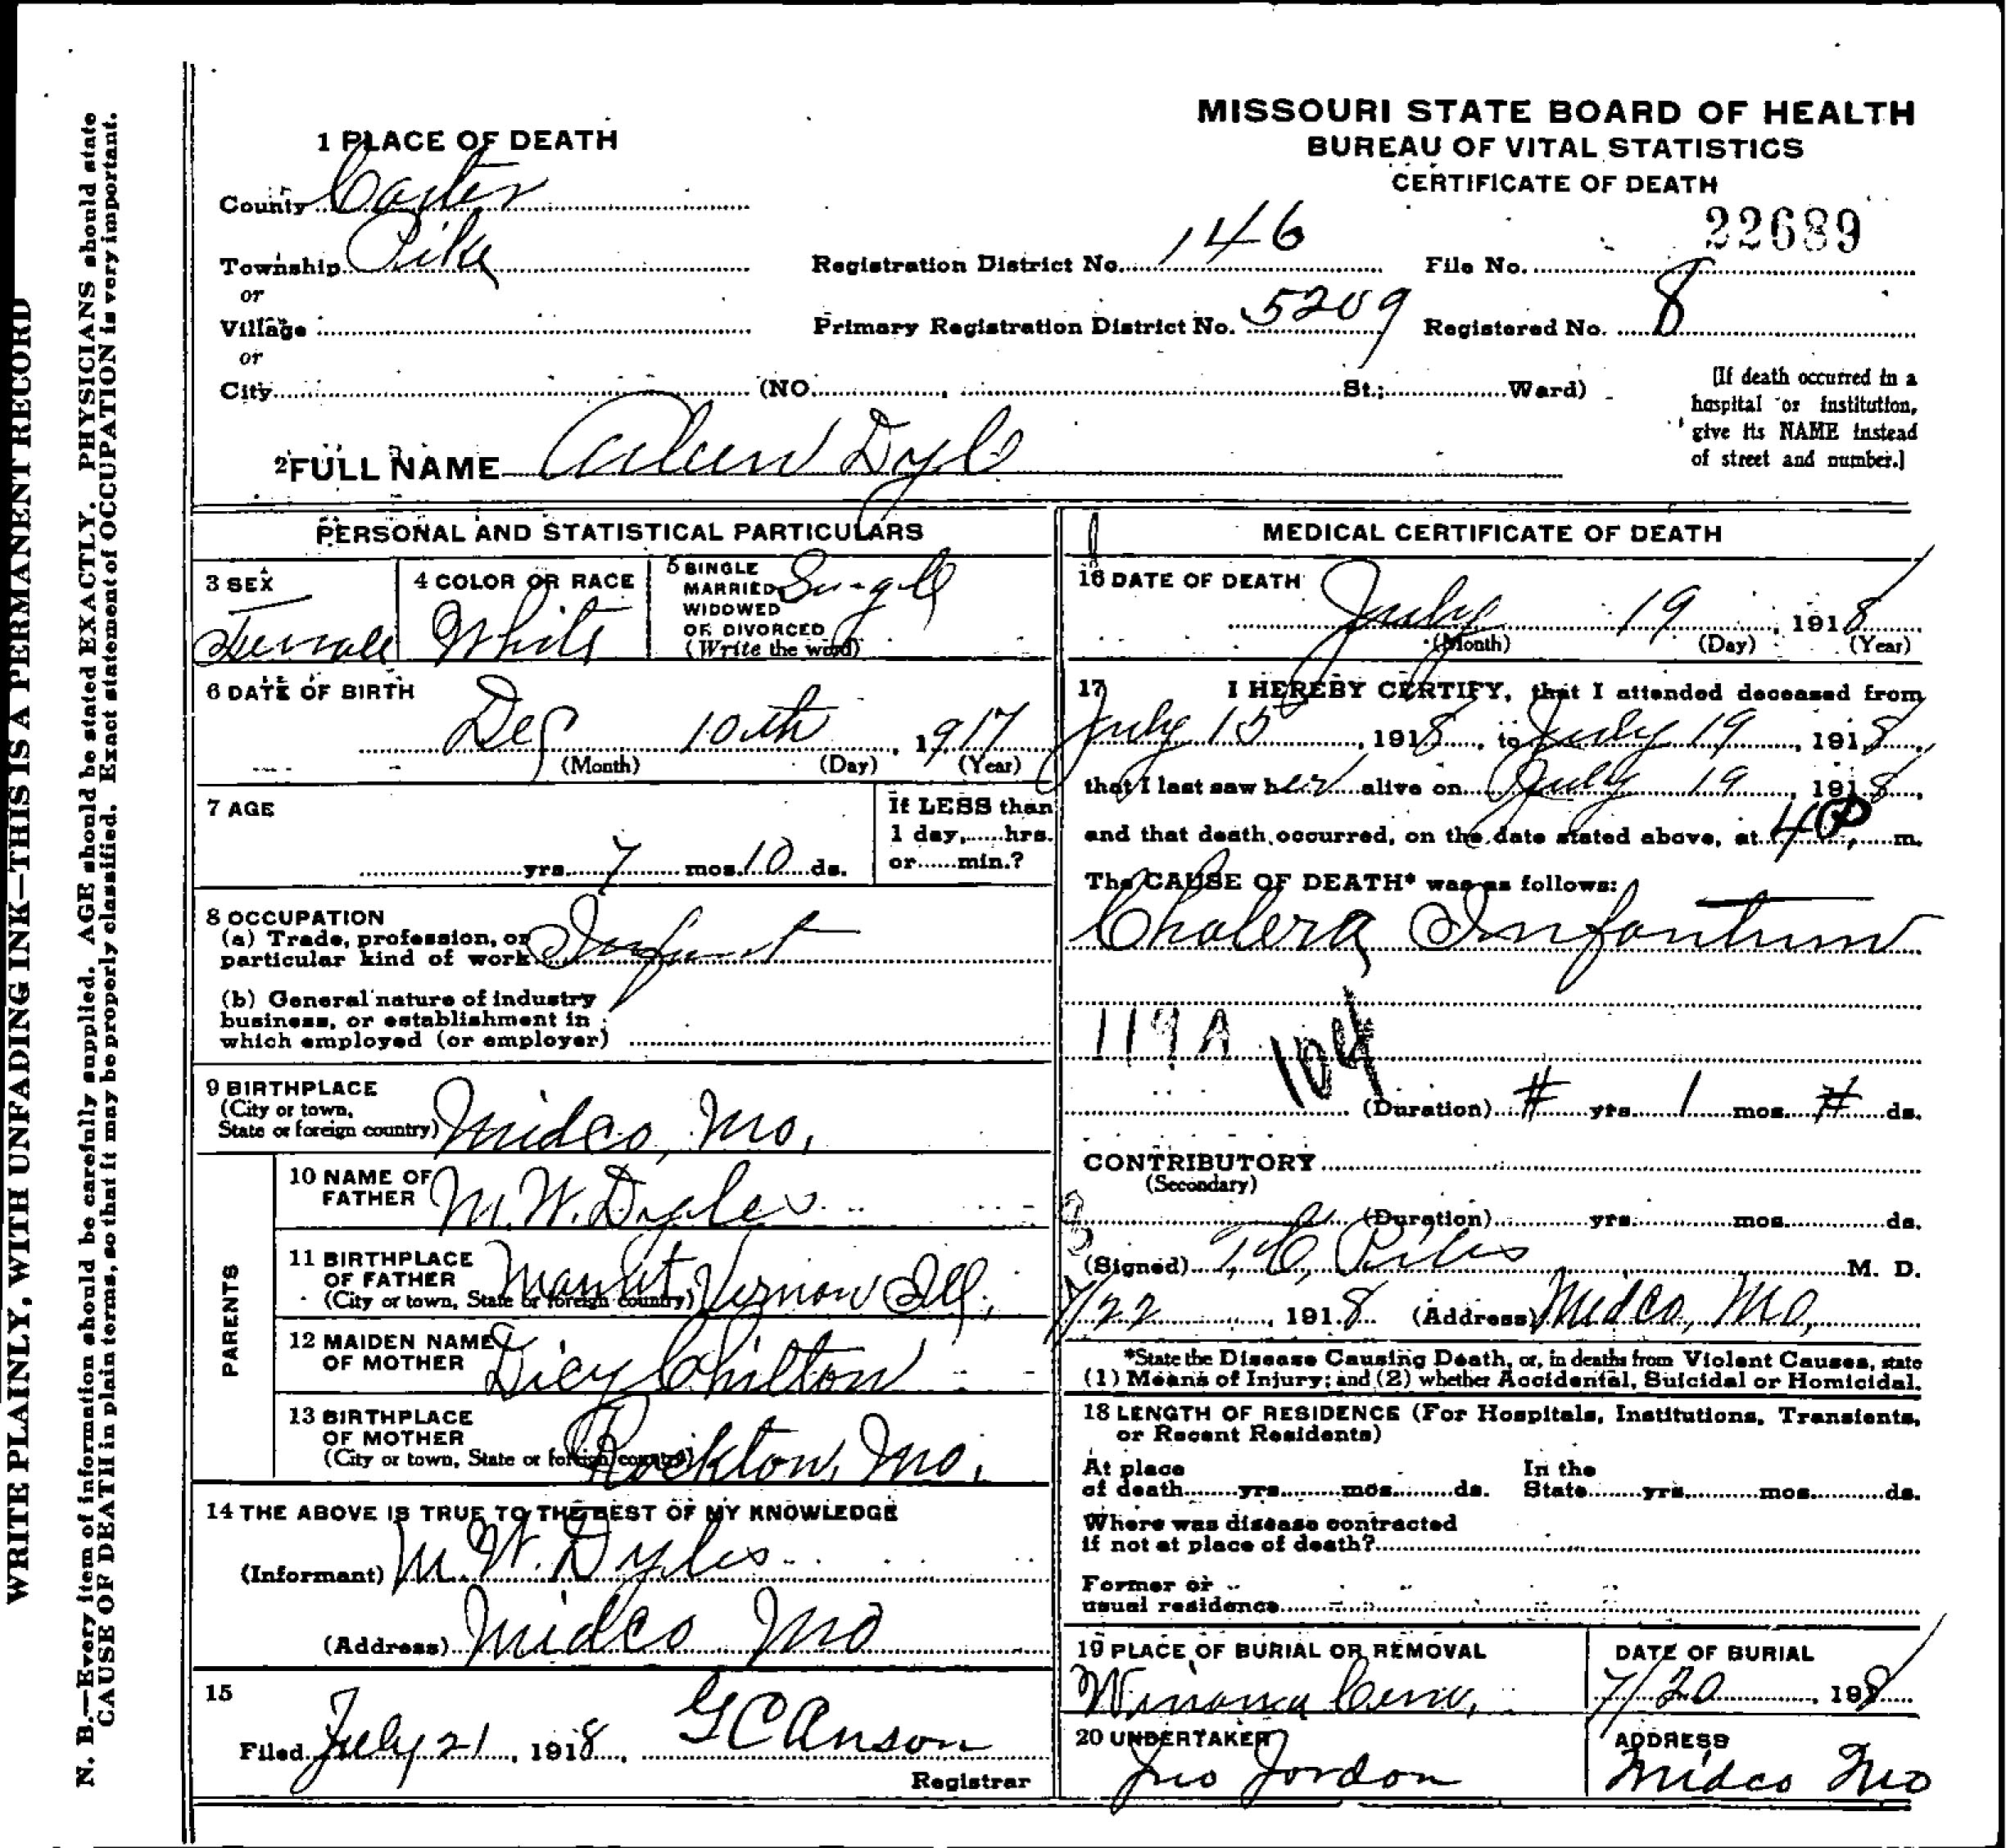 MISSOURI STATE BOARD OF HEALTH
BUREAU OF VITAL STATISTICS
CERTIFICATE OF DEATH
1 PLACE OF DEATH
County Carter
Township Pike
or
Village
or
City (NO. , St.; Ward)
Registration District No. 146
File No. 22689
Primary Registration District No. 5209
Registered No. 8
[If death occurred in a
hospital or institution,
give its NAME instead
of street and number.]
2 FULL NAME
PERSONAL AND STATISTICAL PARTICULARS
3 SEX
Female
4 COLOR OR RACE
White
5 SINGLE
MARRIED
WIDOWED
OR DIVORCED
(Write the word)
Single
6 DATE OF BIRTH
Dec 10th, 1917
(Month) (Day) (Year)
7 AGE
yrs. 7 mos. 10 ds.
If LESS than
1 day, hrs.
or min.?
8 OCCUPATION
(a) Trade, profession, or
particular kind of work Infant
(b) General nature of industry
business, or establishment in
which employed (or employer)
9 BIRTHPLACE
(City or town,
State or foreign country) Midco, Mo.
PARENTS
10 NAME OF
FATHER M. W. Dyles
11 BIRTHPLACE
OF FATHER
(City or town, State or foreign country) Vernon Ill.
12 MAIDEN NAME
OF MOTHER Dicy Chilton
13 BIRTHPLACE
OF MOTHER
(City or town, State or foreign country) Rockton, Mo.
14 THE ABOVE IS TRUE TO THE BEST OF MY KNOWLEDGE
(Informant) M. W. Dyles
(Address) Midco Mo
15
Filed July 21, 1918, G C Anson
Registrar
MEDICAL CERTIFICATE OF DEATH
16 DATE OF DEATH
July 19, 1918
(Month) (Day) (Year)
17 I HEREBY CERTIFY, that I attended deceased from
July 15, 1918, to July 19, 1918,
that I last saw her alive on July 19, 1918,
and that death occurred, on the date stated above, at 4 P m.
The CAUSE OF DEATH* was as follows:
Cholera Infantum
119A 104
(Duration) # yrs. 1 mos. # ds.
CONTRIBUTORY
(Secondary)
(Duration) yrs. mos. ds.
(Signed) M. D.
7/22, 1918 (Address) Midco, Mo,
*State the Disease Causing Death, or, in deaths from Violent Causes, state
(1) Means of Injury; and (2) whether Accidental, Suicidal or Homicidal.
18 LENGTH OF RESIDENCE (For Hospitals, Institutions, Transients,
or Recent Residents)
At place
of death yrs. mos. ds. In the
State yrs. mos. ds.
Where was disease contracted
if not at place of death?
Former or
usual residence
19 PLACE OF BURIAL OR REMOVAL
Winona Cem,
DATE OF BURIAL
7/20, 1918
20 UNDERTAKER
Jno Jordon
ADDRESS
Midco Mo
WRITE PLAINLY, WITH UNFADING INK—THIS IS A PERMANENT RECORD
N. B.—Every item of information should be carefully supplied. AGE should be stated EXACTLY. PHYSICIANS should state
CAUSE OF DEATH in plain terms, so that it may be properly classified. Exact statement of OCCUPATION is very important.